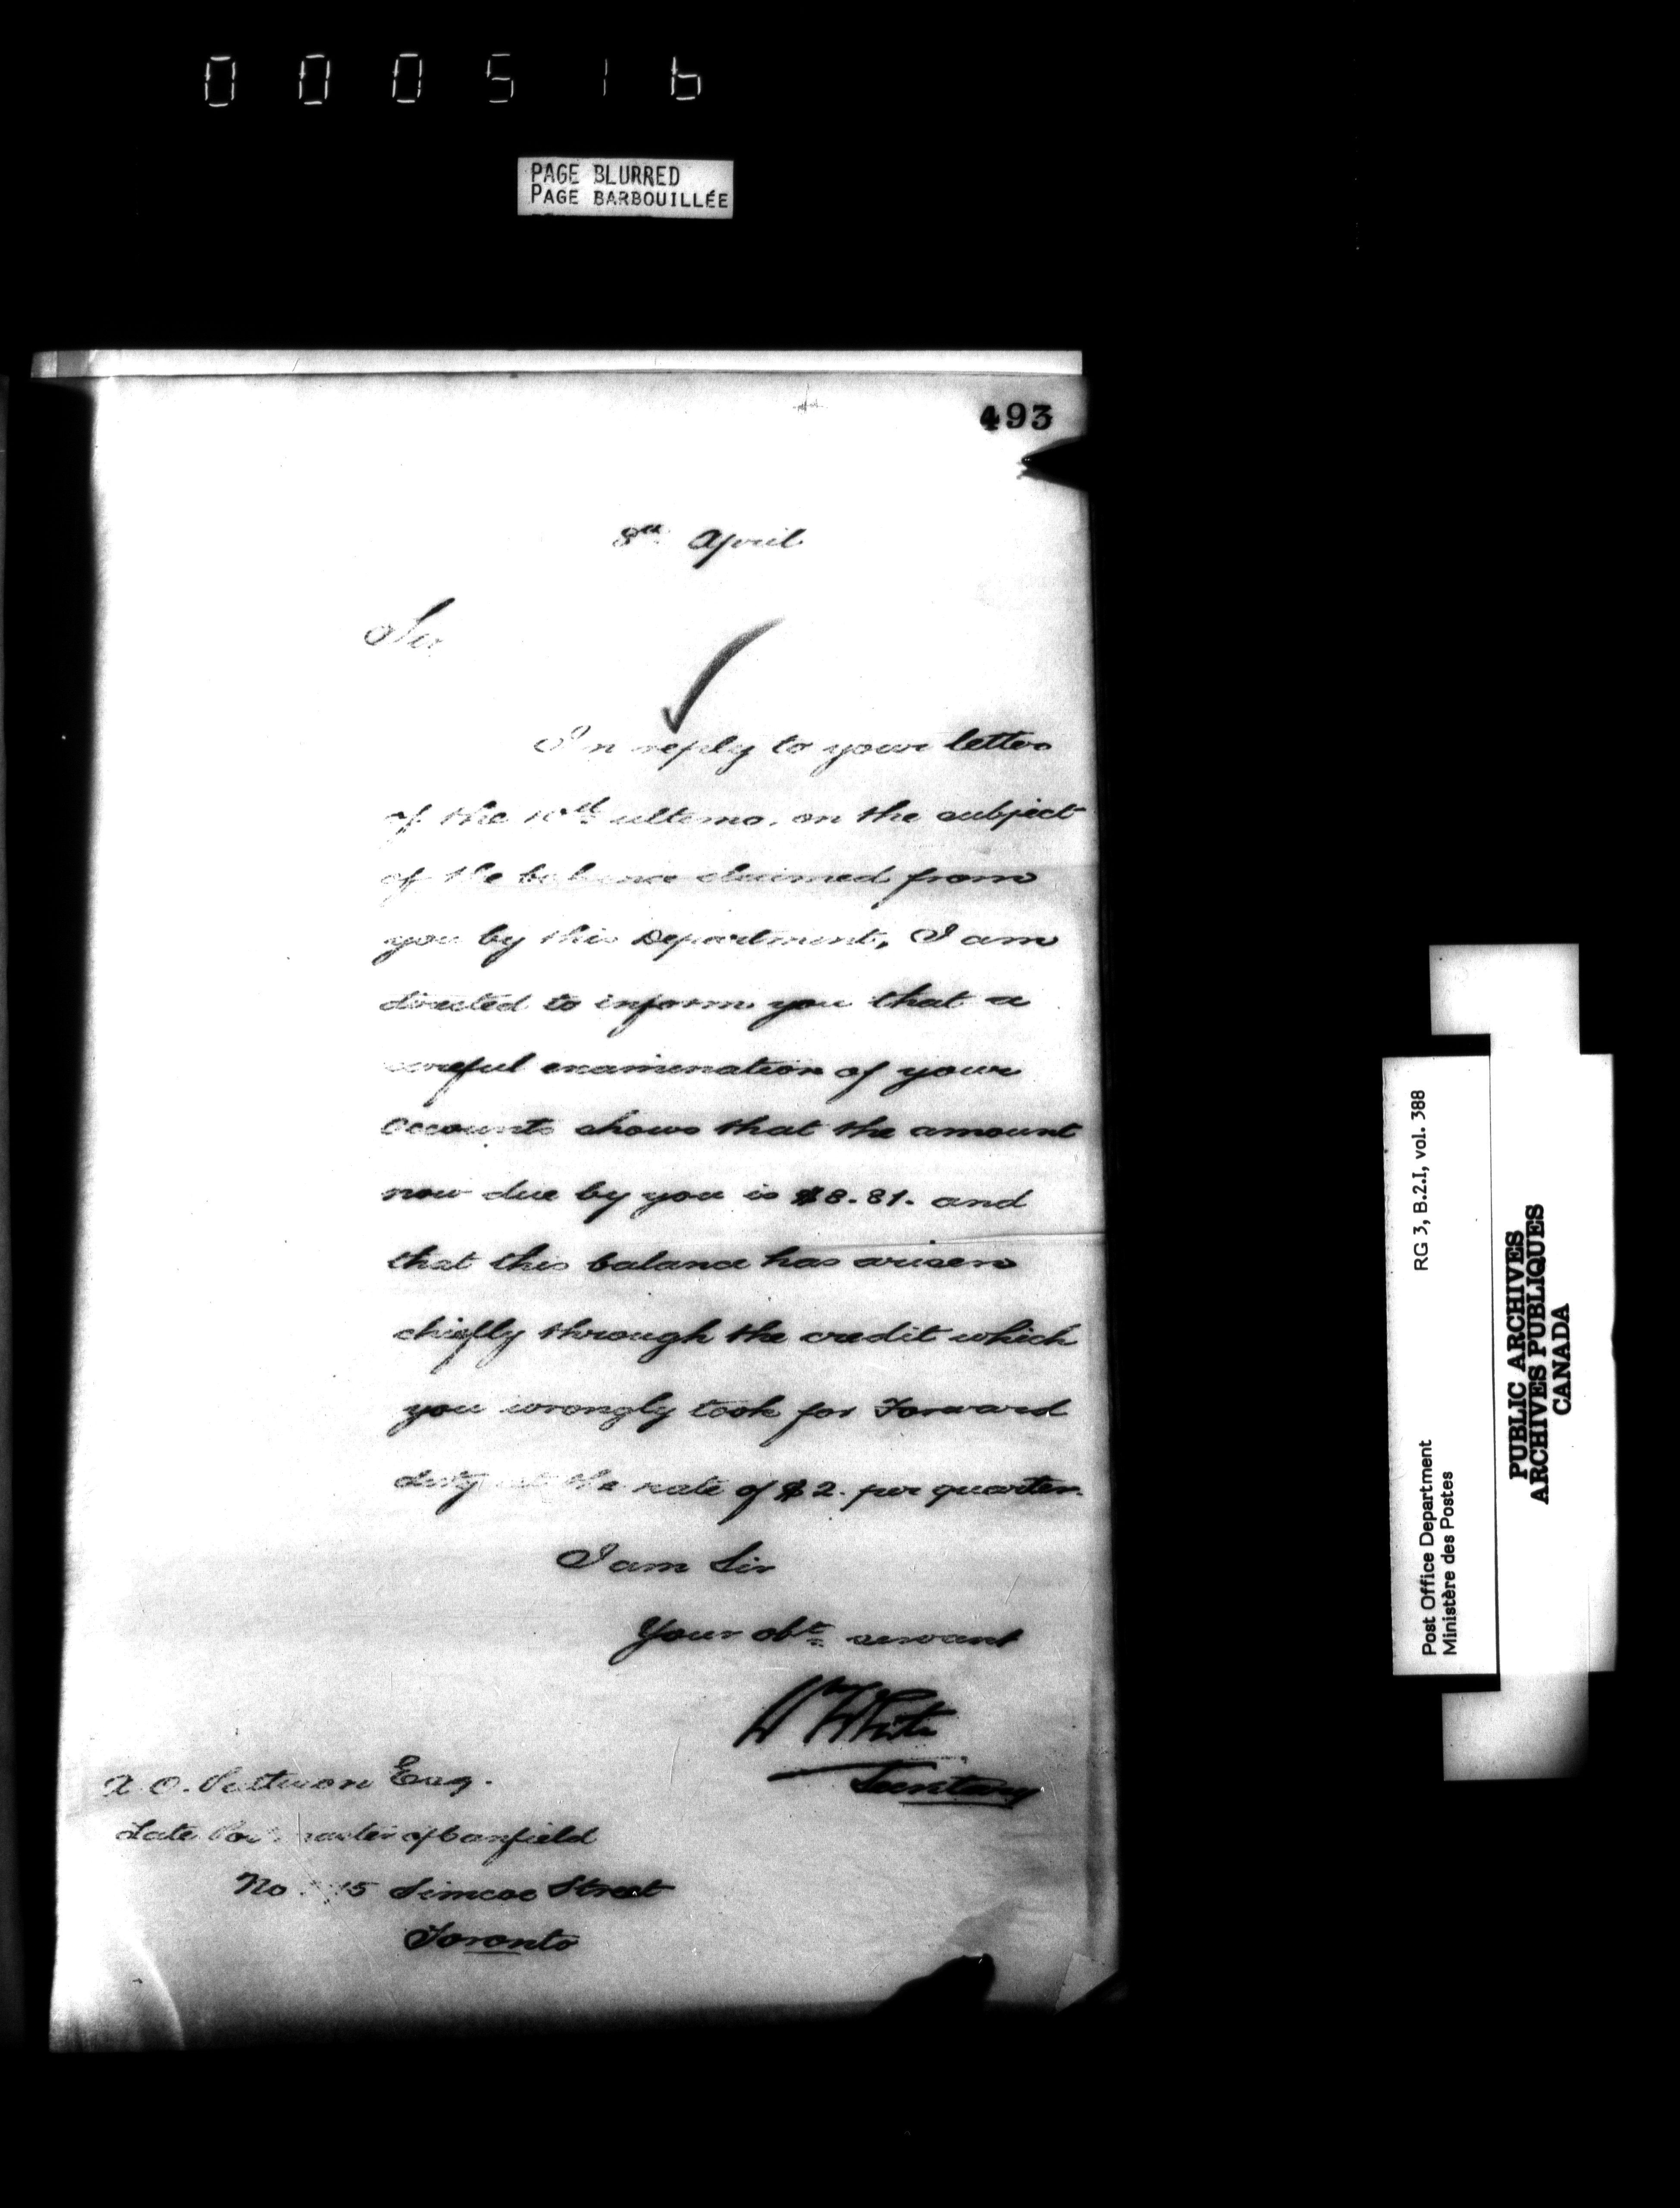 000516
PAGE BLURRED
PAGE BARBOUILLÉE
493
8th April
Sir
In reply to your letter
of the 10th ultimo, on the subject
of the balance claimed from
you by this Department, I am
directed to inform you that a
careful examination of your
accounts shows that the amount
now due by you is $8.81. and
that this balance has arisen
chiefly through the credit which
you wrongly took for Forward
duty at the rate of $2. per quarter.
I am Sir
Your obt. servant
W White
Secretary
Esq.
Late Postmaster of Canfield
No. Simcoe Street
Toronto
RG 3, B.2.I, vol. 388
Post Office Department
Ministère des Postes
PUBLIC ARCHIVES
ARCHIVES PUBLIQUES
CANADA